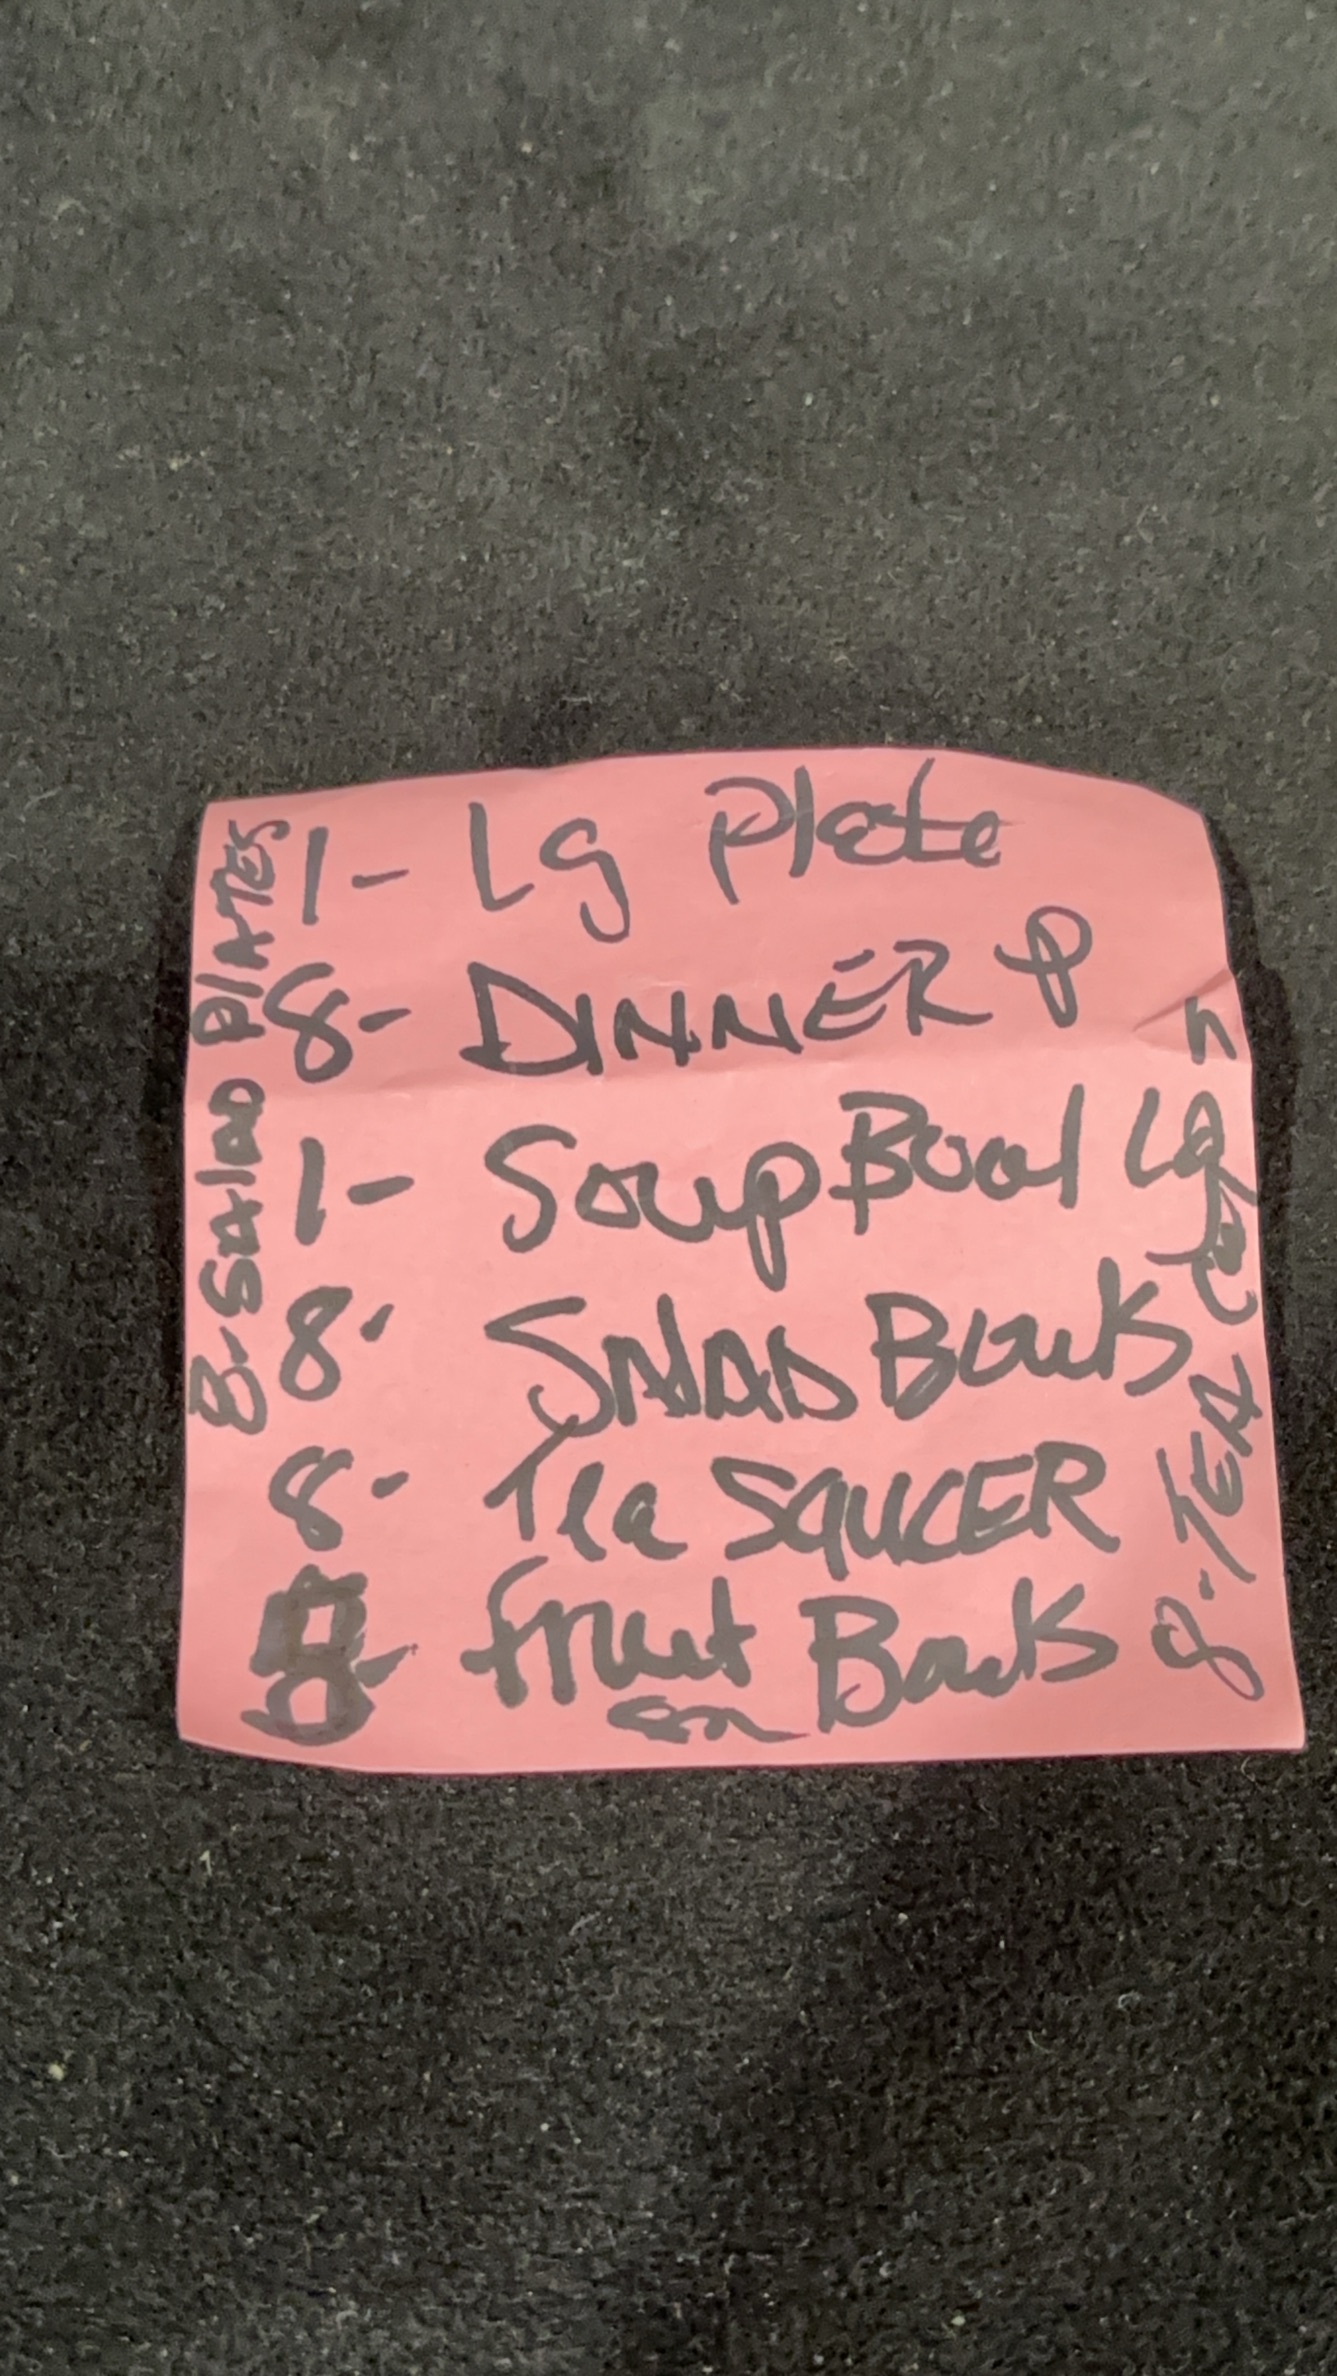 1- Lg Plate
8- DINNER P
1- Soup Bowl Lg
8- SALAD Bowls
8- Tea SAUCER
8- fruit Bowls
sm
8- SALAD PlATES
8- TEA Cups